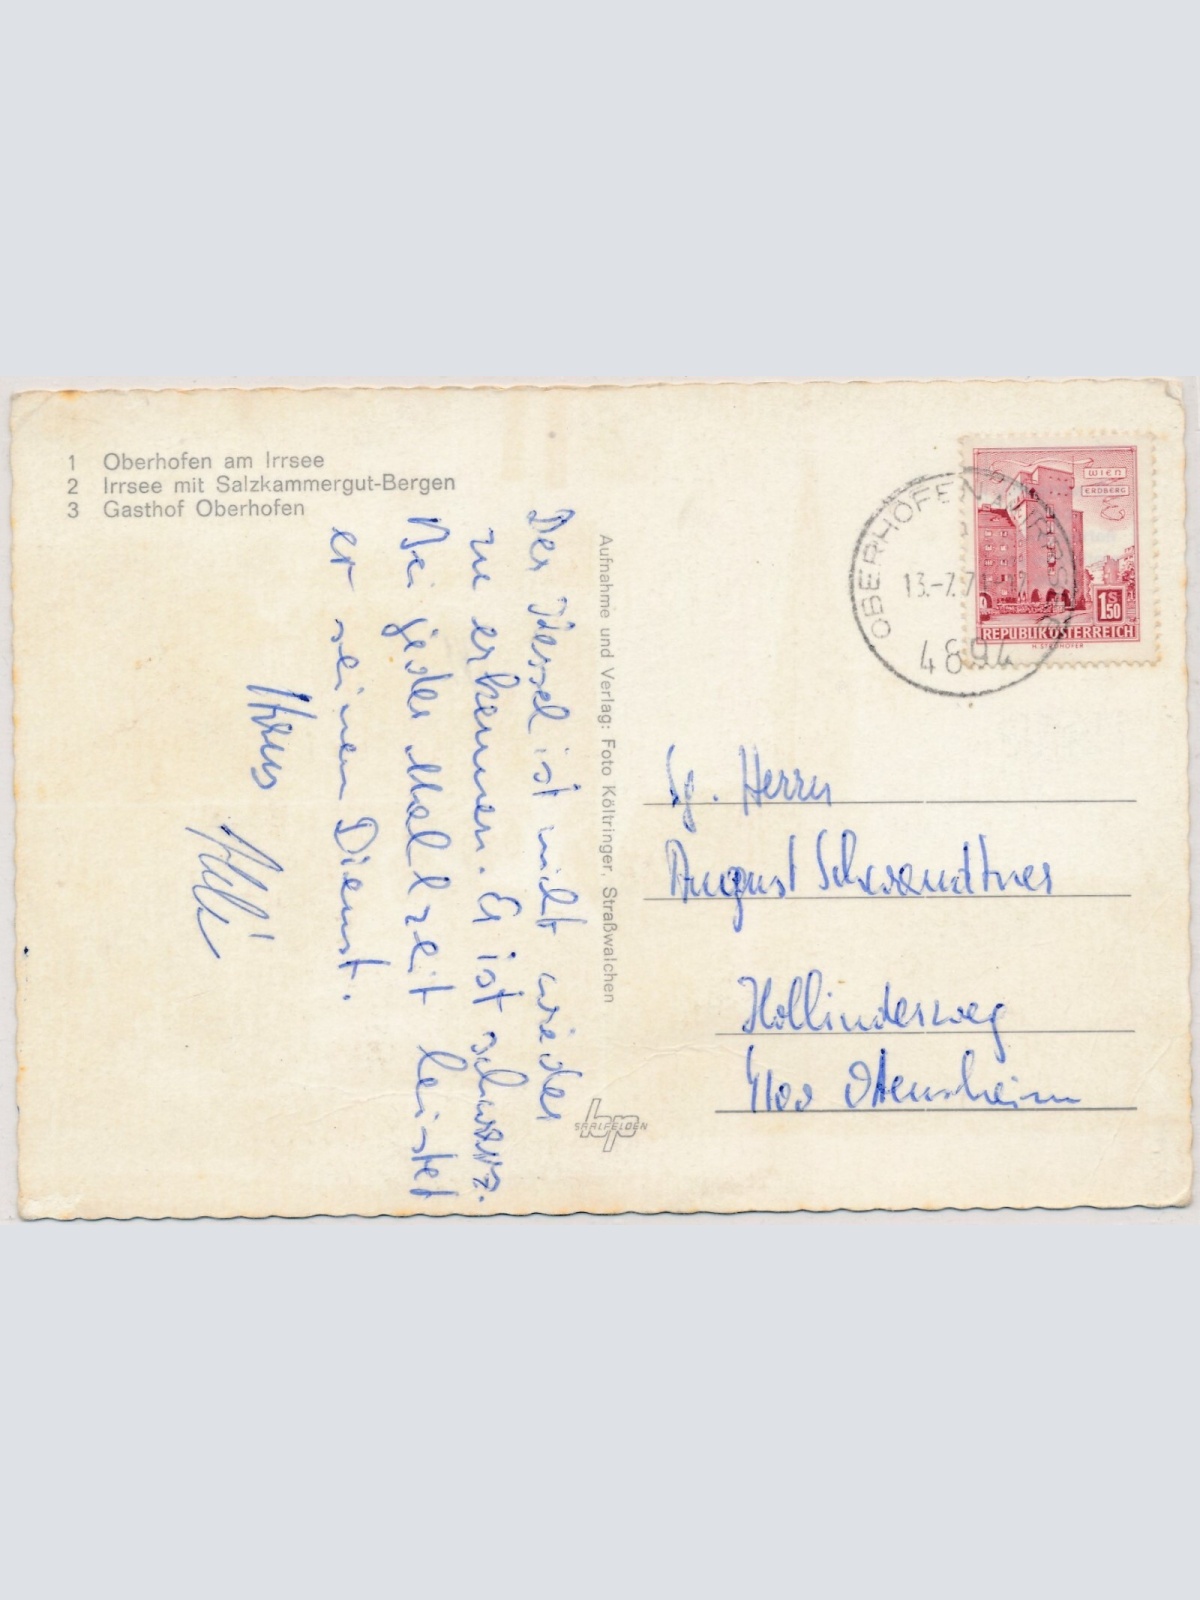 1 Oberhofen am Irrsee
2 Irrsee mit Salzkammergut-Bergen
3 Gasthof Oberhofen
Der Kessel ist nicht wieder
zu erkennen. Er ist schwarz.
Bei jeder Mahlzeit leistet
er seinen Dienst.
Hans
Aufnahme und Verlag: Foto Költringer, Straßwalchen
hp
SAALFELDEN
WIEN
ERDBERG
1 S 50
REPUBLIK ÖSTERREICH
OBERHOFEN A. IRRSEE
13.-7.71
4894
Sg. Herrn
August Schwandtner
Hollinderweg
4100 Ottensheim